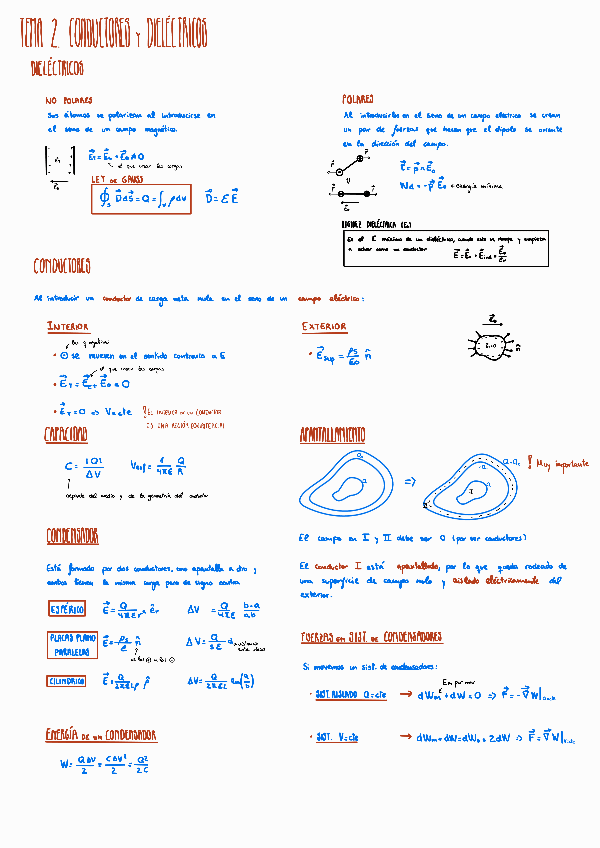 TEMA 2. CONDUCTORES y DIELÉCTRICOS
DIELÉCTRICOS
NO POLARES
Sus átomos se polarizan al introducirse en
el seno de un campo magnético.
E_T = E_0 + E_D ≠ 0
el que crean las cargas
E_0
LEY DE GAUSS
∮_S D dS = Q = ∫_V ρ dV
D = ε E
POLARES
Al introducirlos en el seno de un campo eléctrico se crean
un par de fuerzas que hacen que el dipolo se oriente
en la dirección del campo.
τ = p × E_0
W_d = -p E_0 → energía mínima
RIGIDEZ DIELÉCTRICA
Es el E máximo de un dieléctrico, cuando este se rompe y empieza
a actuar como un conductor
CONDUCTORES
Al introducir un conductor de carga neta nula en el seno de un campo eléctrico:
INTERIOR
⊖ se mueven en el sentido contrario a E
el que crean las cargas
E_T = 0 ⇒ V = cte
EL INTERIOR DE UN CONDUCTOR
ES UNA REGIÓN EQUIPOTENCIAL
EXTERIOR
E_sup = ρs/ε0 n
CAPACIDAD
C = |Q|/ΔV
V_esf = 1/4πε Q/R
depende del medio y de la geometría del conductor
APANTALLAMIENTO
⇒
I
II
! Muy importante
El campo en I y II debe ser 0 (por ser conductores)
El conductor I está apantallado, por lo que queda rodeado de
una superficie de campo nulo y aislado eléctricamente del
exterior.
CONDENSADOR
Está formado por dos conductores, uno apantalla a otro y
ambos tienen la misma carga pero de signo contra
ESFÉRICO E = Q/4πεr² êr ΔV = Q/4πε b-a/ab
PLACAS PLANO PARALELAS E = ρs/ε n ΔV = Q/Sε d
CILINDRICO E = Q/2πεLρ ρ ΔV = Q/2πεL ln(a/b)
FUERZAS en SIST. DE CONDENSADORES
Si movemos un sist. de condensadores:
SIST. AISLADO Q=cte → dWm + dW = 0 ⇒ F = -∇W|Q=cte
SIST. V=cte → dWm + dW = dWb = 2dW ⇒ F = ∇W|V=cte
ENERGÍA DE UN CONDENSADOR
W = QΔV/2 = CΔV²/2 = Q²/2C